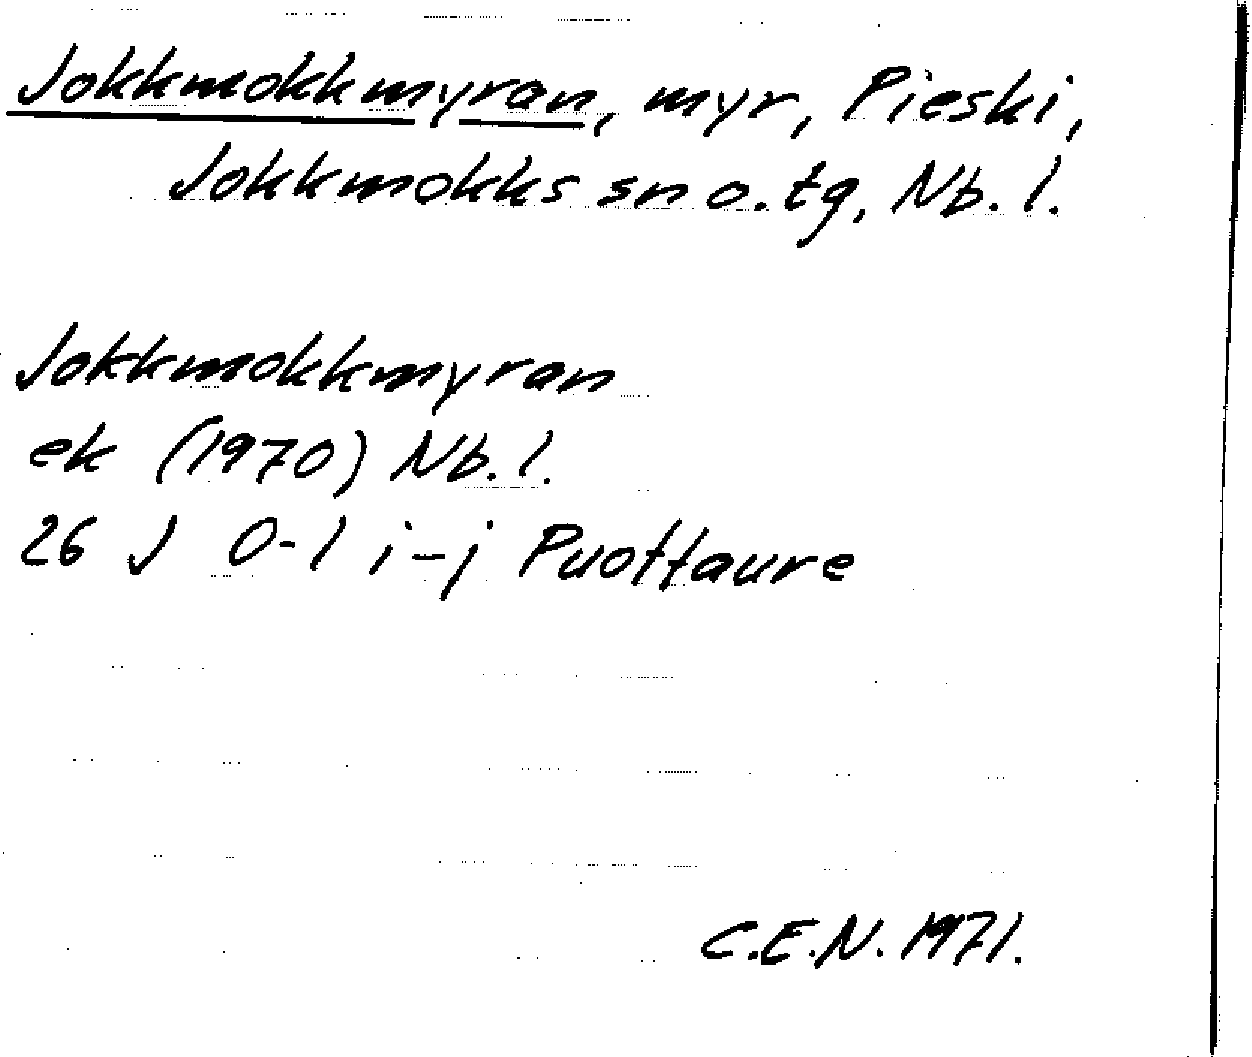 Jokkmokkmyran, myr, Pieski,
Jokkmokks sn o. tg, Nb. l.
Jokkmokkmyran
ek (1970) Nb. l.
26 J 0-1 i-j Puottaure
C.E.N. 1971.